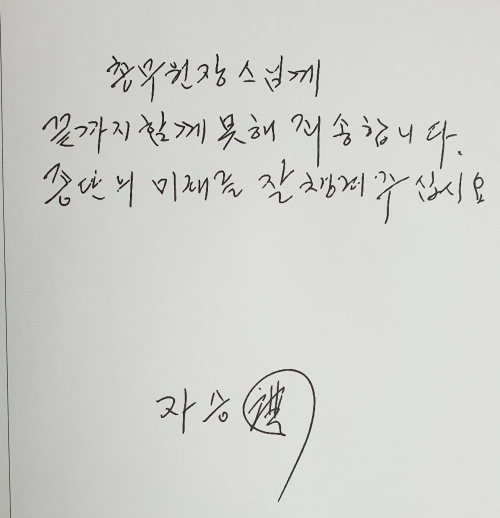 총무원장스님께
끝까지함께 못해 죄송합니다.
종단의 미래를 잘 챙겨주십시요
자승